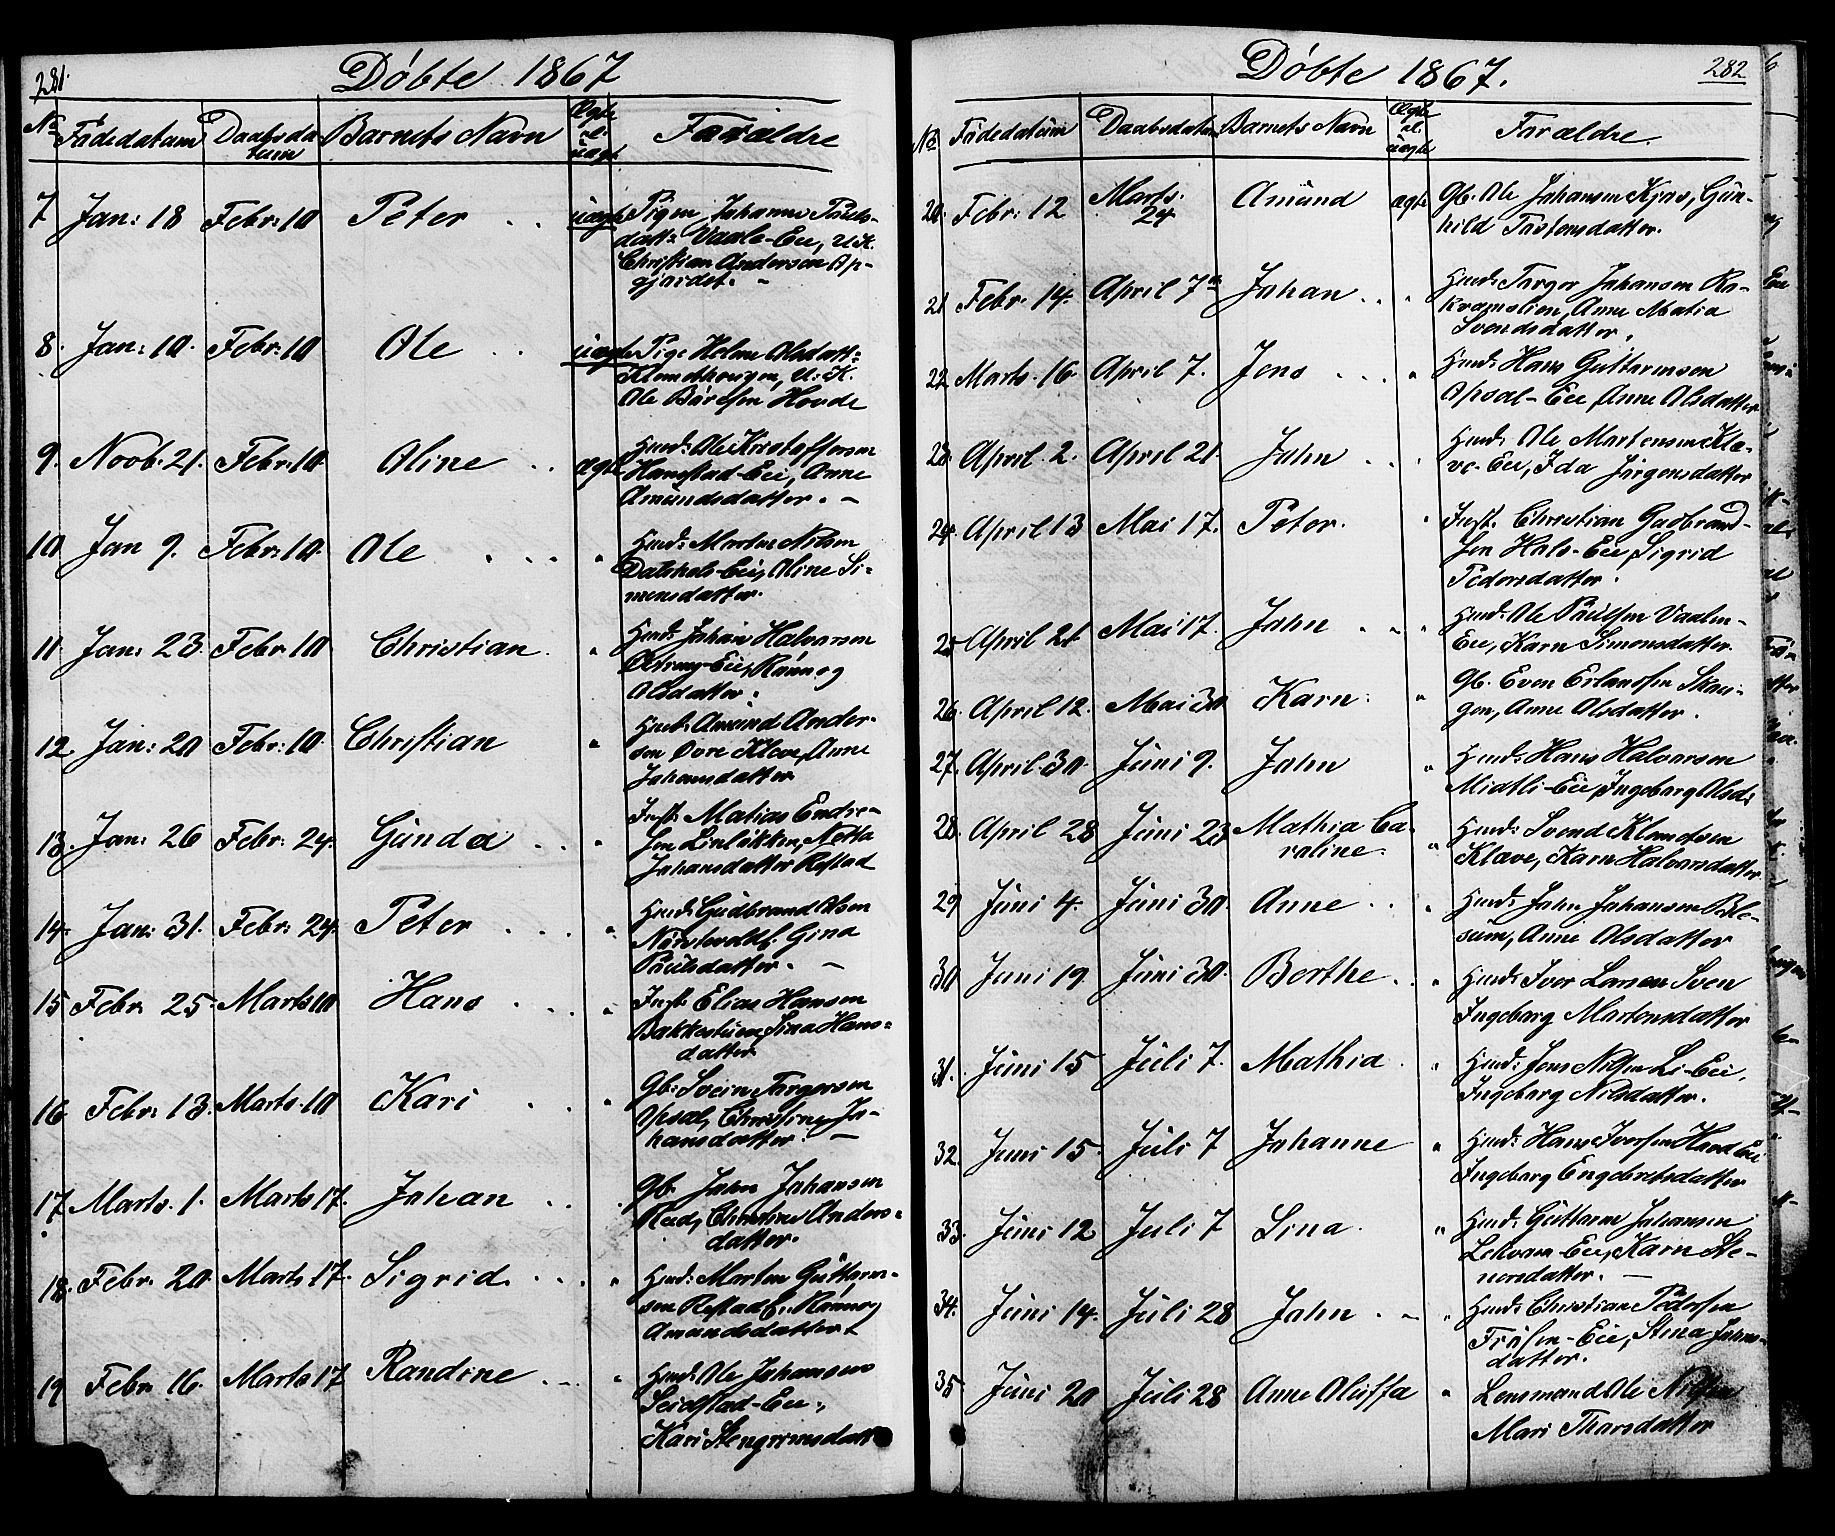 281.
Döbte 1867
No Födedatum Daabsdatum Barnets Navn Ægte el. uægte Forældre
7 Jan: 18 Febr: 10 Peter uægte Pigen Johanne Pauls-
datt: Vaale-Eie, U.K.
Christian Andersen Op-
gjordet.
8. Jan: 10. Febr: 10 Ole uægte Pige Helene Olsdatt:
Klomshougen, U. K.
Ole Bårdsen Hovde
9. Novb. 21. Febr: 10 Oline ægte Husd: Ole Kristoffersen
Harrstad-Eie, Anne
Amundsdatter.
10 Jan 9. Febr: 10. Ole " Husd: Morten Nilsen
Dalshols-Eie, Oline Si-
mensdatter.
11. Jan: 23. Febr 10 Christian. " Husd: Johan Halvorsen
Eie, Rønnog
Olsdatter.
12. Jan: 20 Febr: 10. Christian " Husd: Amund Ander-
sen Øvre Kleve, Anne
Johansdatter
13. Jan: 26 Febr: 24. Günda " Inst: Matias Endre-
sen Linløkken, Netta
Johansdatter Rostad
14. Jan: 31. Febr: 24. Peter " Husd: Gudbrand Olsen
Gina
Paulsdatter.
15 Febr: 25 Marts 10 Hans " Inst: Elias Hansen
Bakkestuen, Sina Hans-
datter
16 Febr: 13. Marts. 10 Kari " Gb: Svein Torgersen
Opsal, Christine Jo-
hansdatter.
17 Marts. 1. Marts 17. Johan " Gb. John Johansen
Rud, Christine Anders-
datter.
18. Febr. 20. Marts 17. Sigrid. " Husd: Morten Guttorm-
sen Rostad E. Rønnog
Amundsdatter
19 Febr 16. Marts 17 Randine " Husd: Ole Johansen
Seidstad-Eie,
Kari Stengrimsdatt
282
Döbte 1867.
No Födedatum Daabsdatum Barnets Navn Ægte el. uægte Forældre.
20. Febr: 12 Marts. 24 Amund ægte Gb. Ole Johansen Kjos, Gun-
hild Tostensdatter.
21 Febr. 14. April 7de Johan " Husd: Torger Johansen Ro-
kvamslien, Anne Matia
Svendsdatter.
22 Marts. 16 April 7. Jens " Husd: Hans Guttormsen
Opsal-Eie, Anne Olsdatter
23. April. 2. April 21. John " Husd: Ole Martensen Kle-
ve-Eie, Ida Jörgensdatter
24. April 13 Mai 17. Peter. " Inst. Christian Gudbrand-
sen Hols-Eie, Sigrid
Pedersdatter.
25 April 21 Mai 17. John " Husd: Ole Paulsen Vaalen-
Eie, Karn Simensdatter.
26. April 12. Mai 30 Karn. " Gb. Even Erlandsen Skau-
gen, Anne Olsdatter.
27. April. 30. Juni 9. John " Husd: Hans Halvorsen
Midtli-Eie, Ingeborg Olsd:
28. April 28 Juni 23 Mathia Ca-
roline. " Husd: Svend Klemetsen
Klave, Karn Halvorsdatter
29 Juni 4. Juni 30. Anne " Husd: John Johansen Ble-
süm, Anne Olsdatter
30 Juni 19. Juni 30. Berthe " Husd: Iver Larsen Sven
Ingeborg Mortensdatter
31. Juni 15 Juli 7. Mathia " Husd: Jens Nilsen Li-Eie,
Ingeborg Nilsdatter.
32. Juni 15. Juli 7 Johanne " Husd: Hans Iversen Eie
Ingeborg Engebretsdatter
33. Juni 12 Juli 7 Sina. " Husd: Guttorm Johansen
Lekvam-Eie, Karn Ste-
nersdatter.
34. Juni 14. Juli 28 John " Husd: Christian Pedersen
Eie, Stina Johns-
datter.
35 Juni 20 Juli 28 Anne Oluffa " Lensmand Ole Nilsen
Mari Thorsdatter